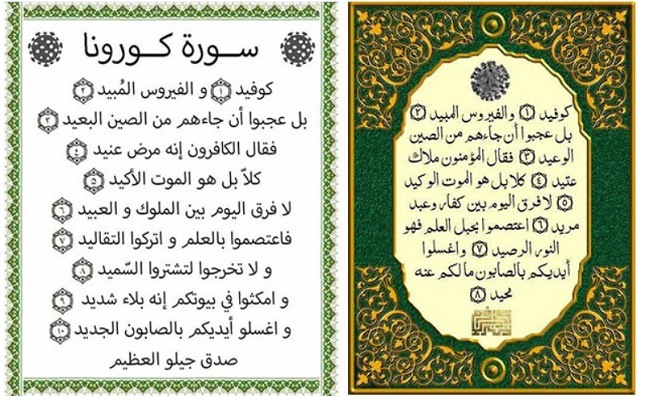 سورة كورونا
كوفيد ۝١ و الفيروس المُبيد ۝٢
بل عجبوا أن جاءهم من الصين البعيد ۝٣
فقال الكافرون إنه مرض عنيد ۝٤
كلاّ بل هو الموت الأكيد ۝٥
لا فرق اليوم بين الملوك و العبيد ۝٦
فاعتصموا بالعلم و اتركوا التقاليد ۝٧
و لا تخرجوا لتشتروا السّميد ۝٨
و امكثوا في بيوتكم إنه بلاء شديد ۝٩
و اغسلو أيديكم بالصابون الجديد ۝١٠
صدق جيلو العظيم
كوفيد ۝١ والفيروس المبيد ۝٢
بل عجبوا أن جاءهم من الصين
الوعيد ۝٣ فقال المؤمنون ملاك
عتيد ۝٤ كلا بل هو الموت الوكيد
۝٥ لا فرق اليوم بين كفار وعبد
مريد ۝٦ اعتصموا بحبل العلم فهو
النور الرصيد ۝٧ واغسلوا
أيديكم بالصابون ما لكم عنه
نحيد ۝٨